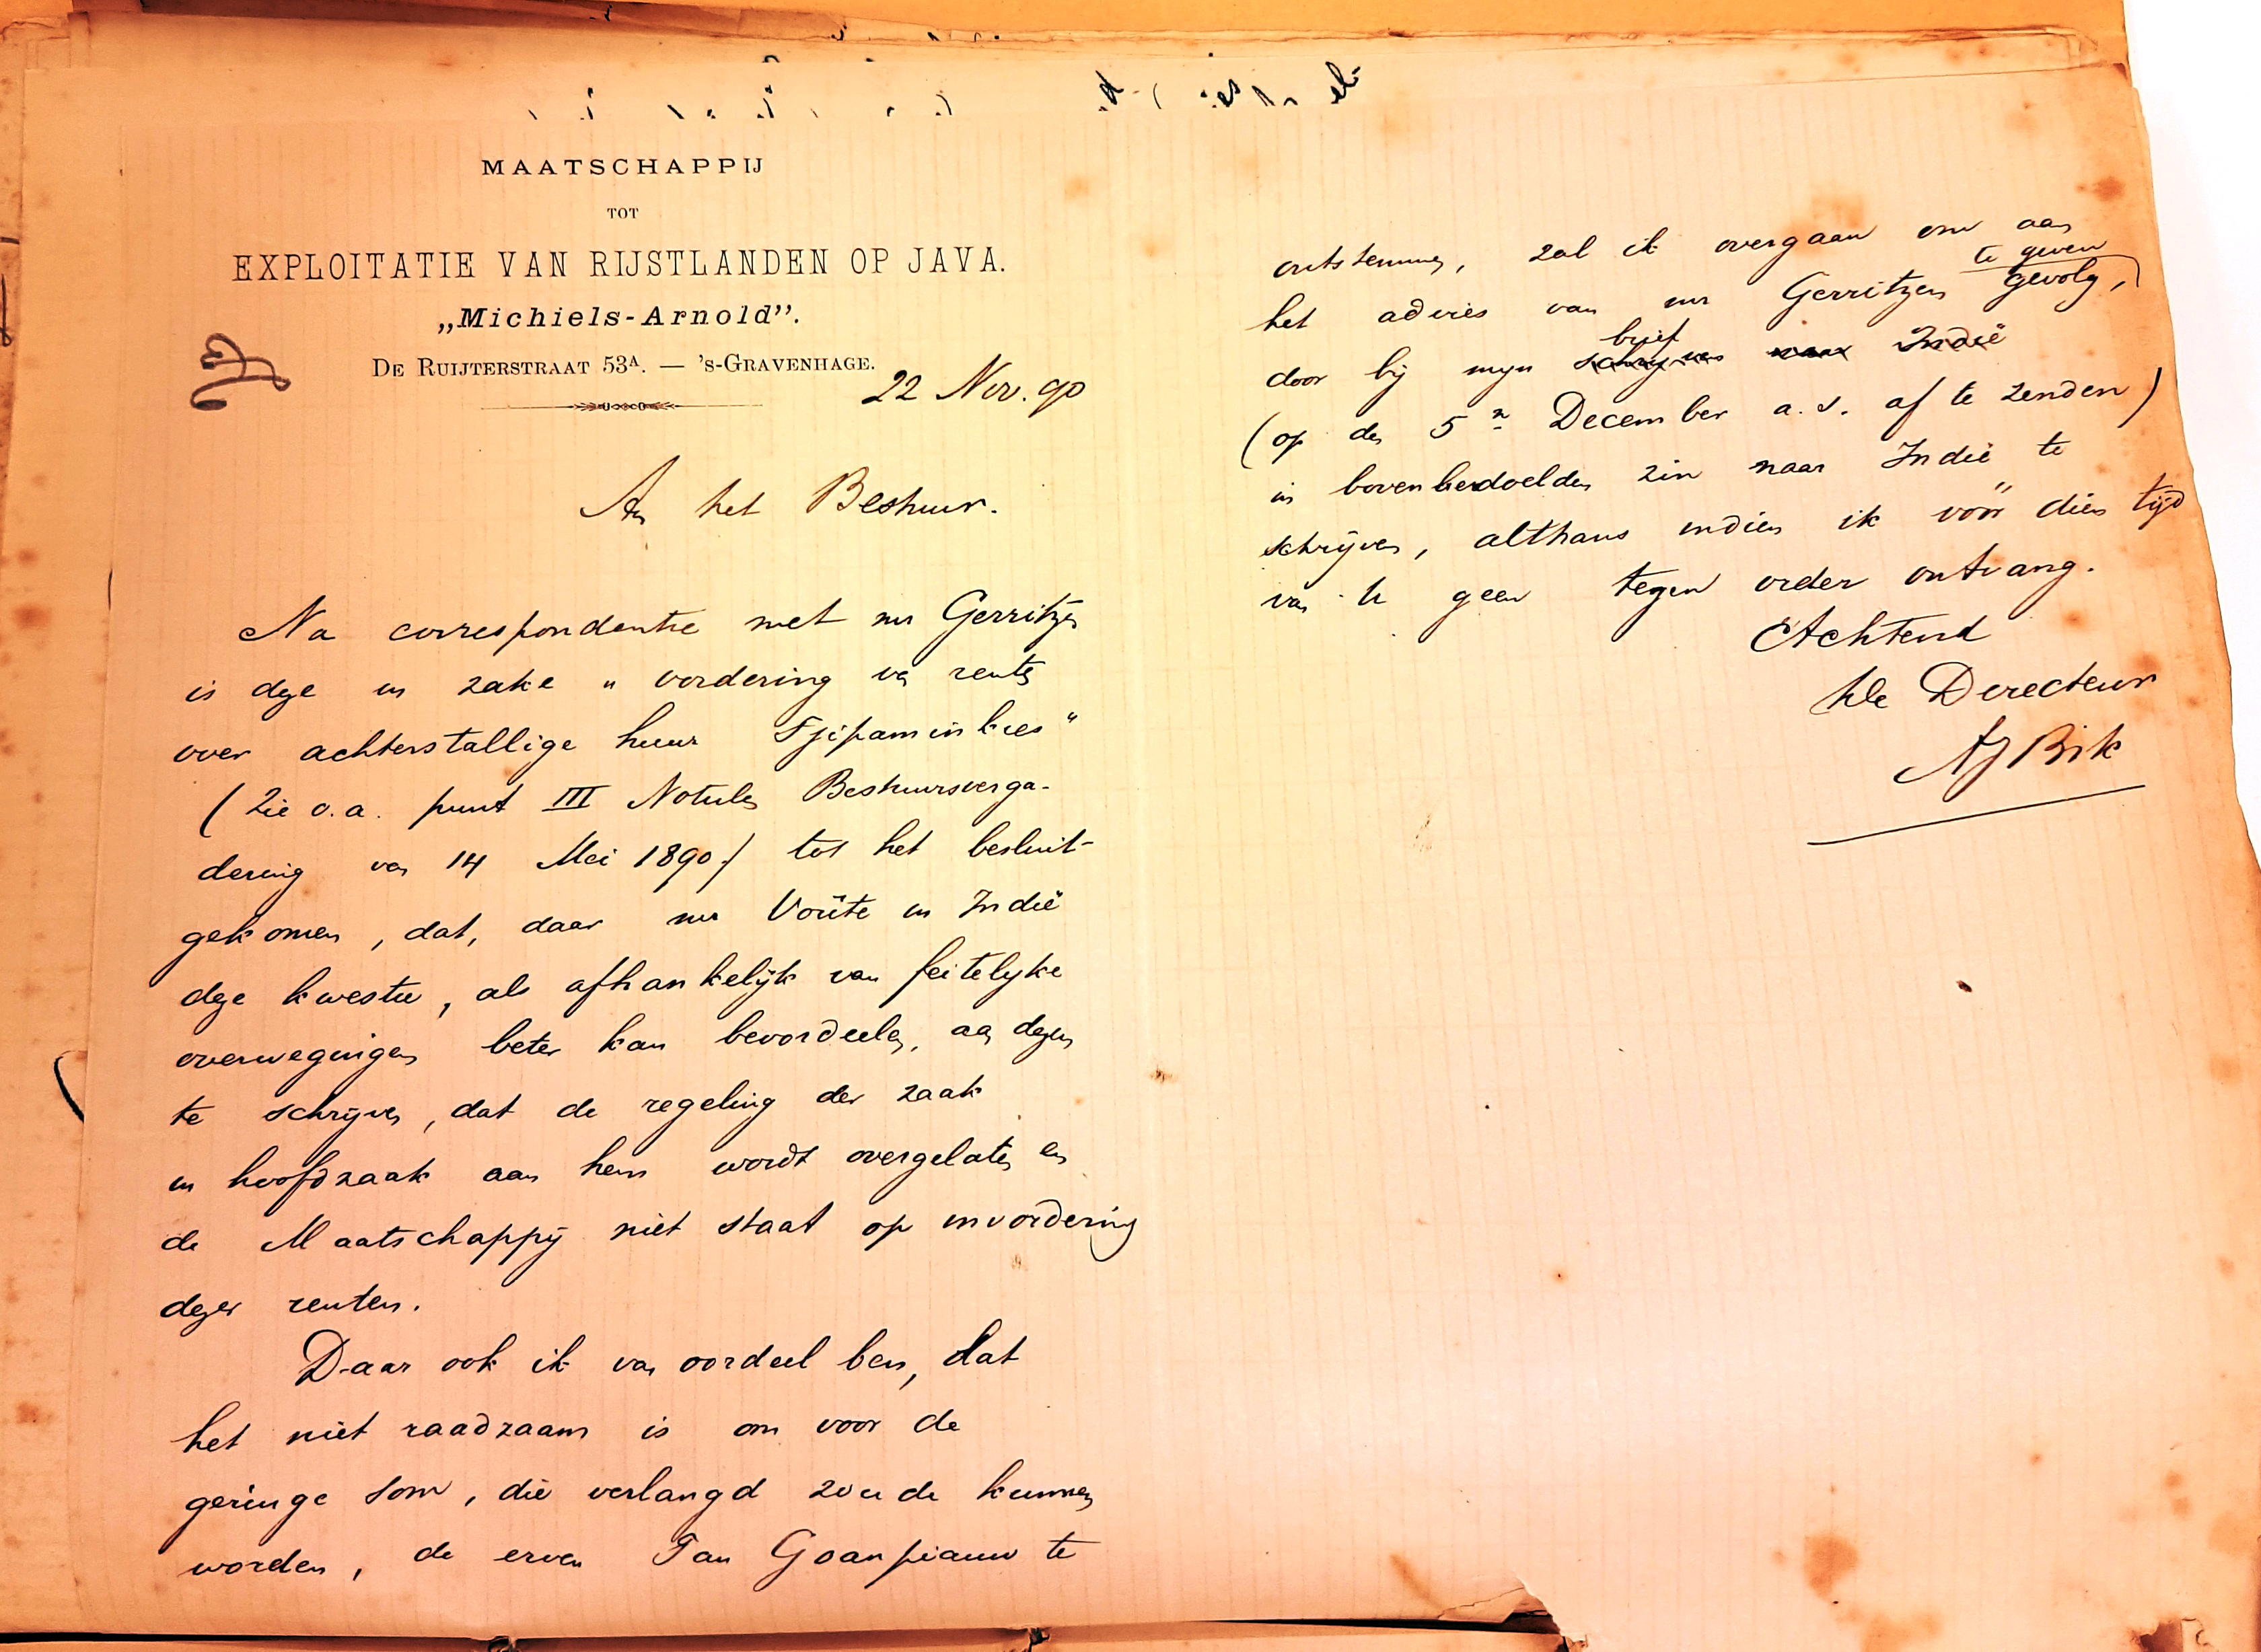 MAATSCHAPPIJ
TOT
EXPLOITATIE VAN RIJSTLANDEN OP JAVA.
„Michiels-Arnold”.
DE RUIJTERSTRAAT 53A. — 's-GRAVENHAGE.
22 Nov. 90
Aan het Bestuur.
Na correspondentie met mr Gerritzen
is deze in zake „ vordering van renten
over achterstallige huur Tjipaminkies”
(Zie o.a. punt III Notulen Bestuursverga-
dering van 14 Mei 1890) tot het besluit
gekomen, dat, daar mr Voûte in Indië
deze kwestie, als afhankelijk van feitelijke
overwegingen beter kan beoordeelen, aan dezen
te schrijven, dat de regeling der zaak
in hoofdzaak aan hem wordt overgelaten en
de Maatschappij niet staat op invordering
dezer renten.
Daar ook ik van oordeel ben, dat
het niet raadzaam is om voor de
geringe som, die verlangd zoude kunnen
worden, de erven Tan Goanpiauw te
ontstemmen, zal ik overgaan om aan
het advies van mr Gerritzen gevolg te geven,
door bij mijn schrijven brief naar Indië
(op den 5n December a.s. af te zenden)
in bovenbedoelden zin naar Indië te
schrijven, althans indien ik vóór dien tijd
van U geen tegen order ontvang.
Achtend
De Directeur
AJ Bik